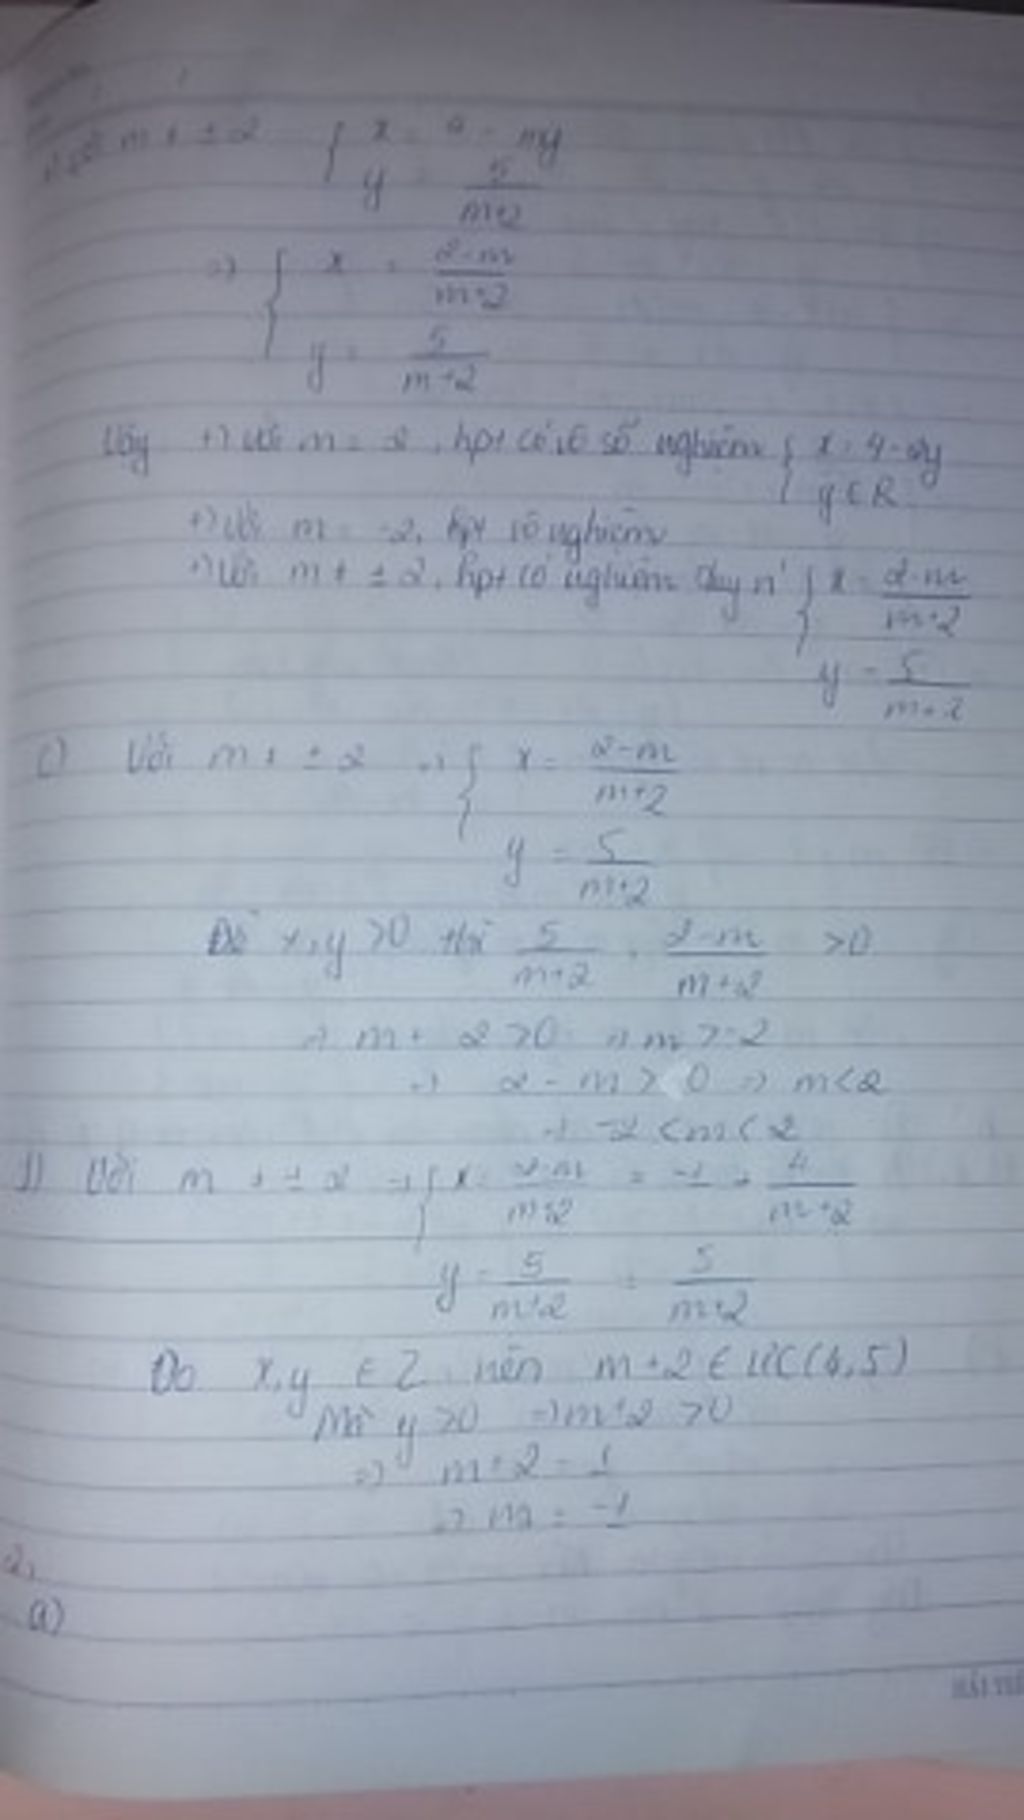 Với m ≠ ± 2 { x = 4 - my
y = 5/(m+2)
=> { x = (2-m)/(m+2)
y = 5/(m+2)
Vậy +) Với m = 2, hpt có vô số nghiệm { x = 4-2y
y ∈ R
+) Với m = -2, hpt vô nghiệm
+) Với m ≠ ± 2, hpt có nghiệm duy n' { x = (2-m)/(m+2)
y = 5/(m+2)
c) Với m ≠ ± 2 => { x = (2-m)/(m+2)
y = 5/(m+2)
Để x, y >0 thì 5/(m+2) , (2-m)/(m+2) >0
=> m + 2 >0 => m > -2
=> 2 - m > 0 => m < 2
=> -2 < m < 2
d) Với m ≠ ± 2 => { x = (2-m)/(m+2) = -1 + 4/(m+2)
y = 5/(m+2) = 5/(m+2)
Do x, y ∈ Z nên m+2 ∈ ƯC(4,5)
Mà y >0 => m+2 >0
=> m+2 = 1
=> m = -1
2,
a)